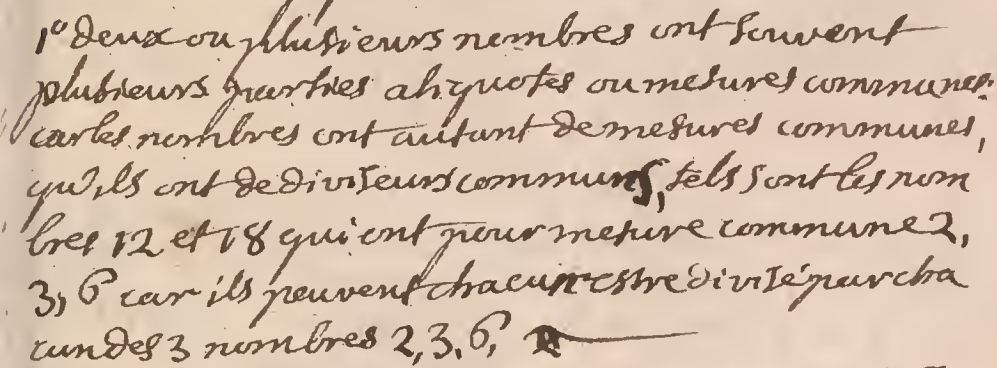 1° deux ou plusieurs nombres ont souvent
plusieurs parties aliquotes ou mesures communes.
car les nombres ont autant de mesures communes,
qu'ils ont de diviseurs communs, tels sont les nom
bres 12 et 18 qui ont pour mesure commune 2,
3, 6 car ils peuvent chacun estre divisé par cha
cun des 3 nombres 2, 3, 6,